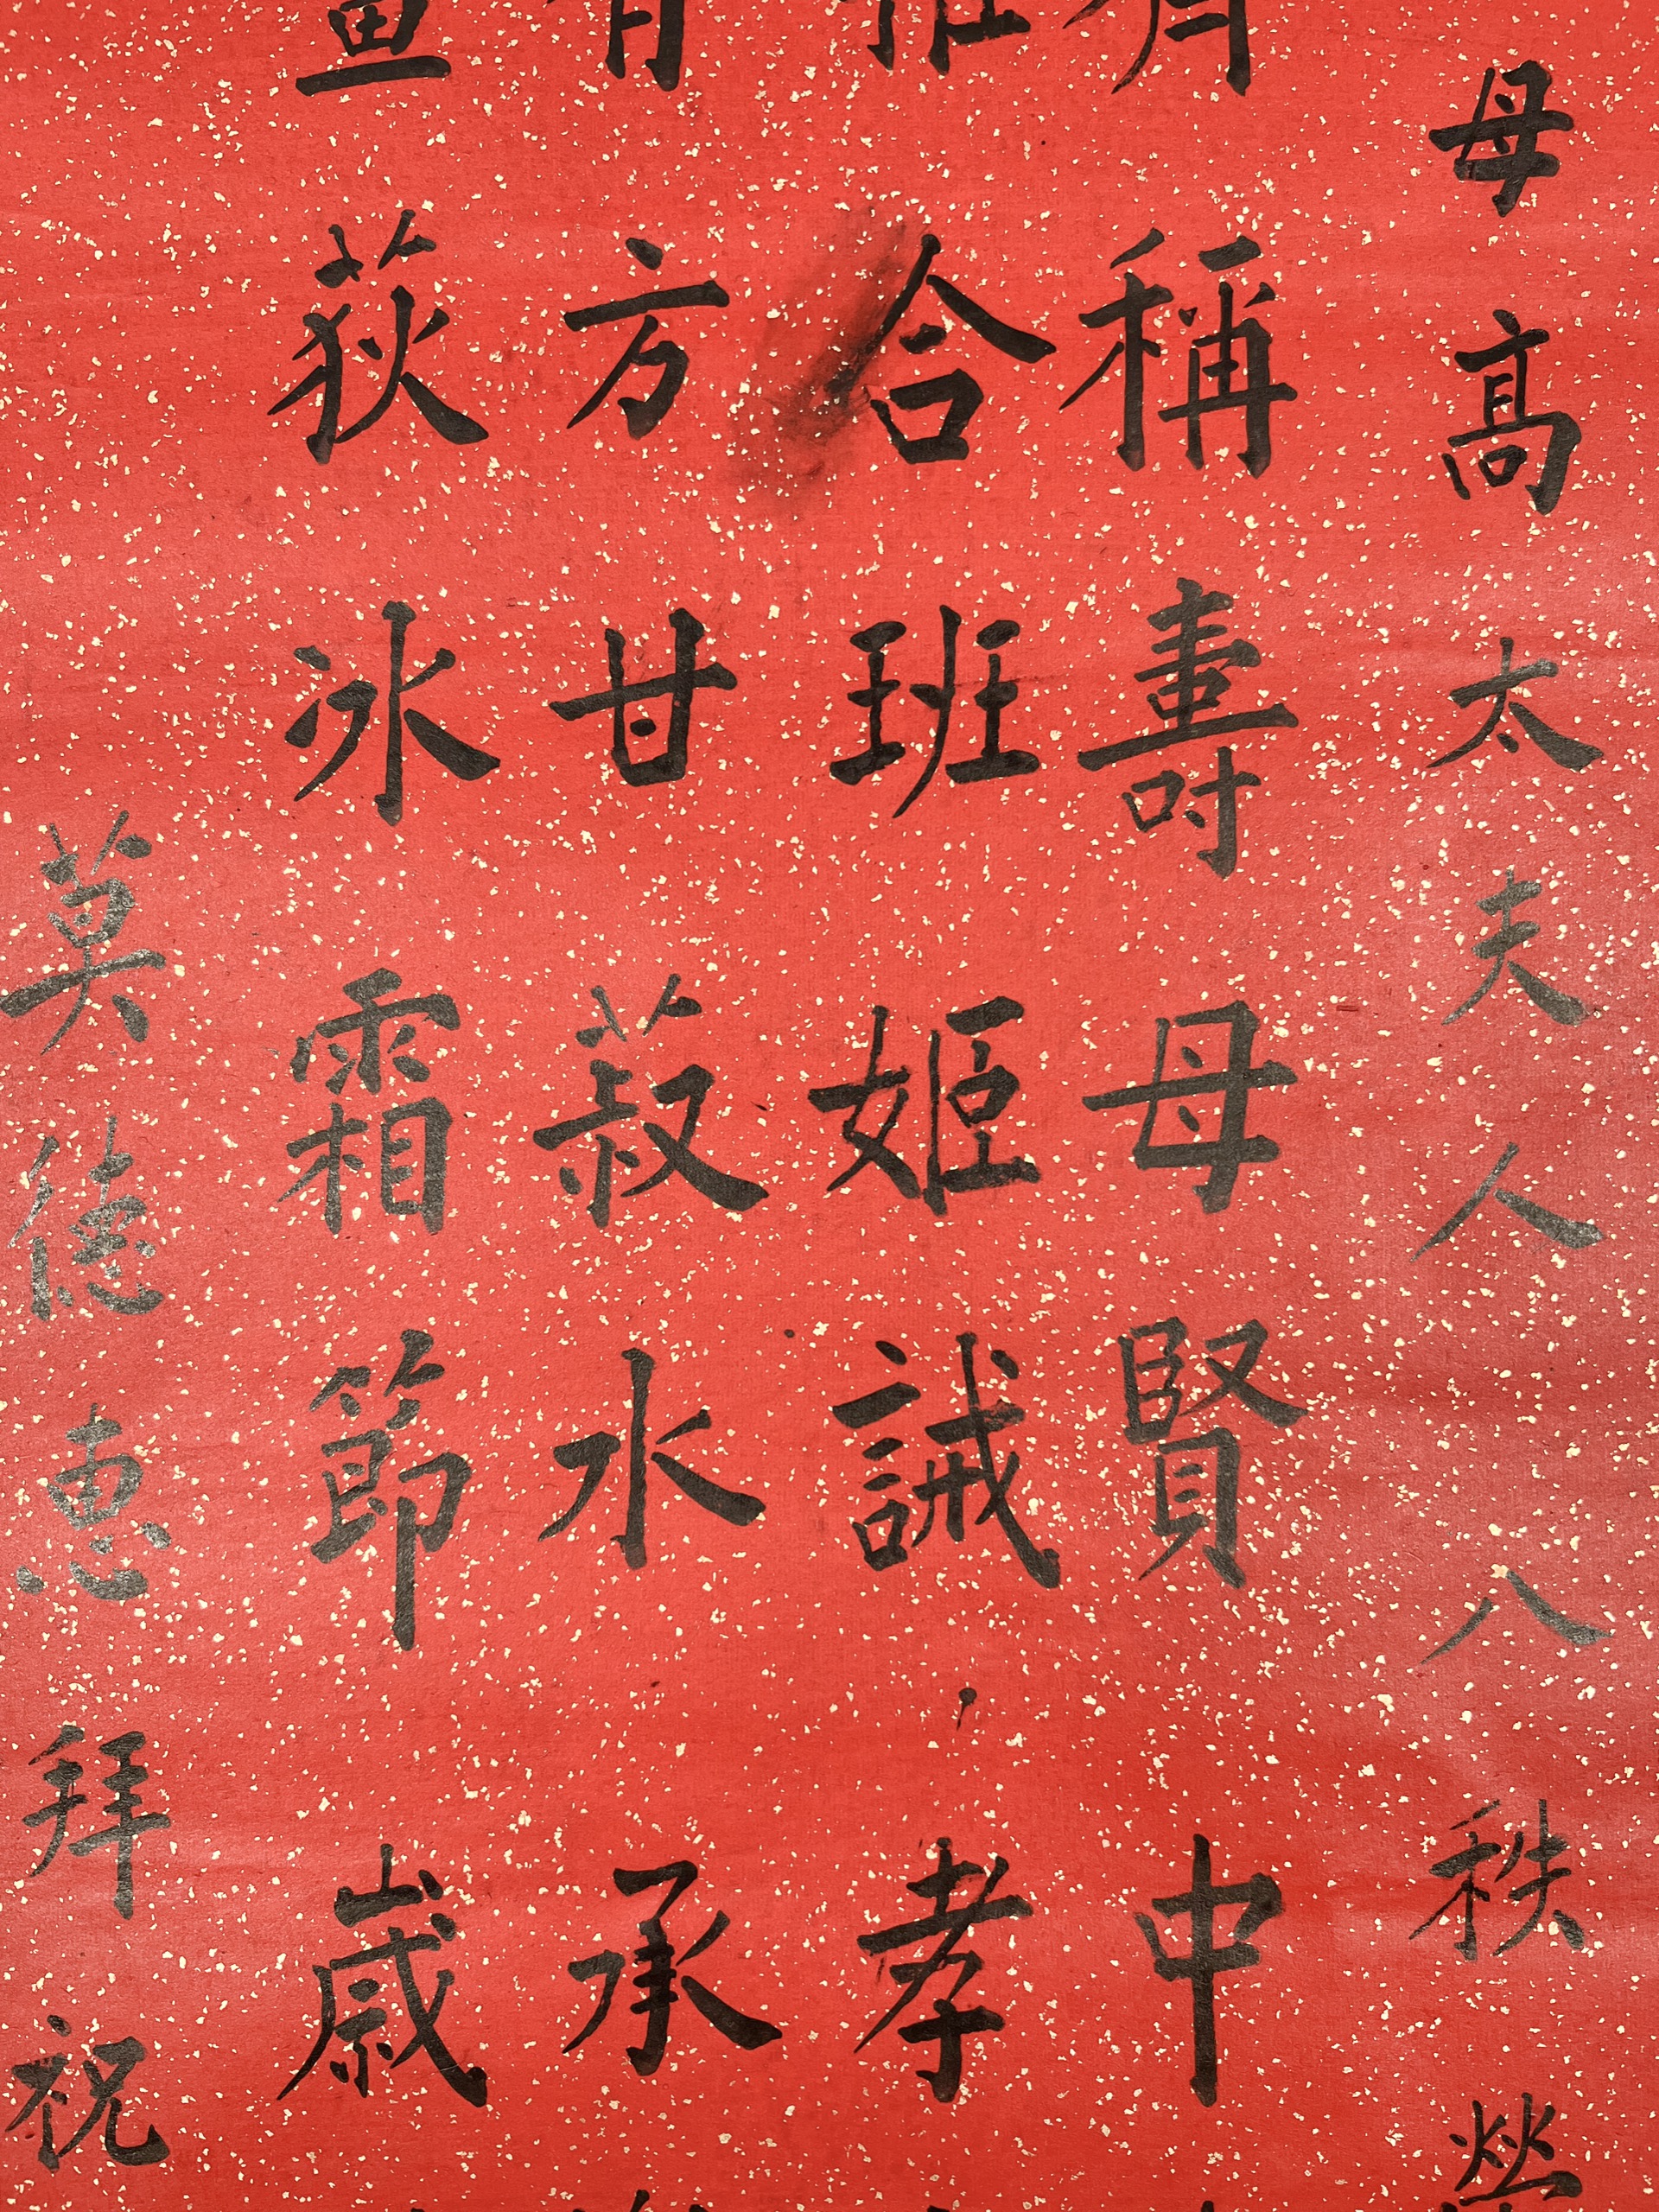 母高太夫人八秩
稱壽母賢中
合班姬誡孝
方甘菽水承
荻冰霜節歲
莫德惠拜祝